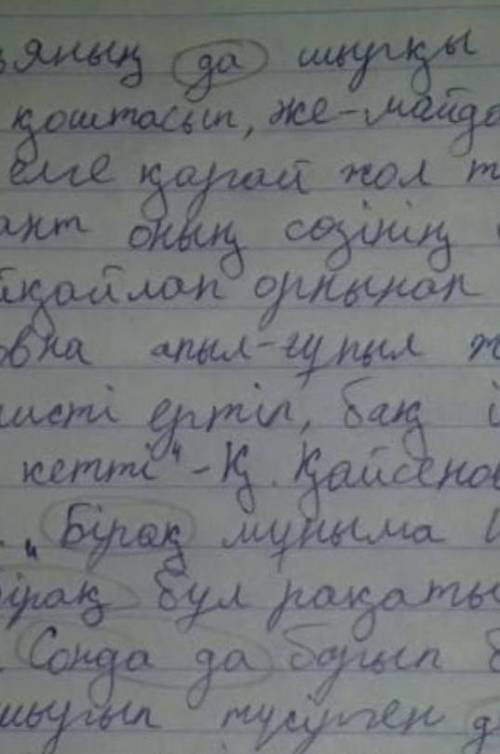 яның да шыңғы
қоштасып, же-майда
елге қарай жол т
ант оның сөзінің
йқайлап орнынан
овна апыл-ғұпыл ж
листі ертіп, бақ і
кетті" - Қ. Қайсенов
„ Бірақ мұныма
бірақ бұл рақаты
Сонда да боғып б
шығып түсірген д